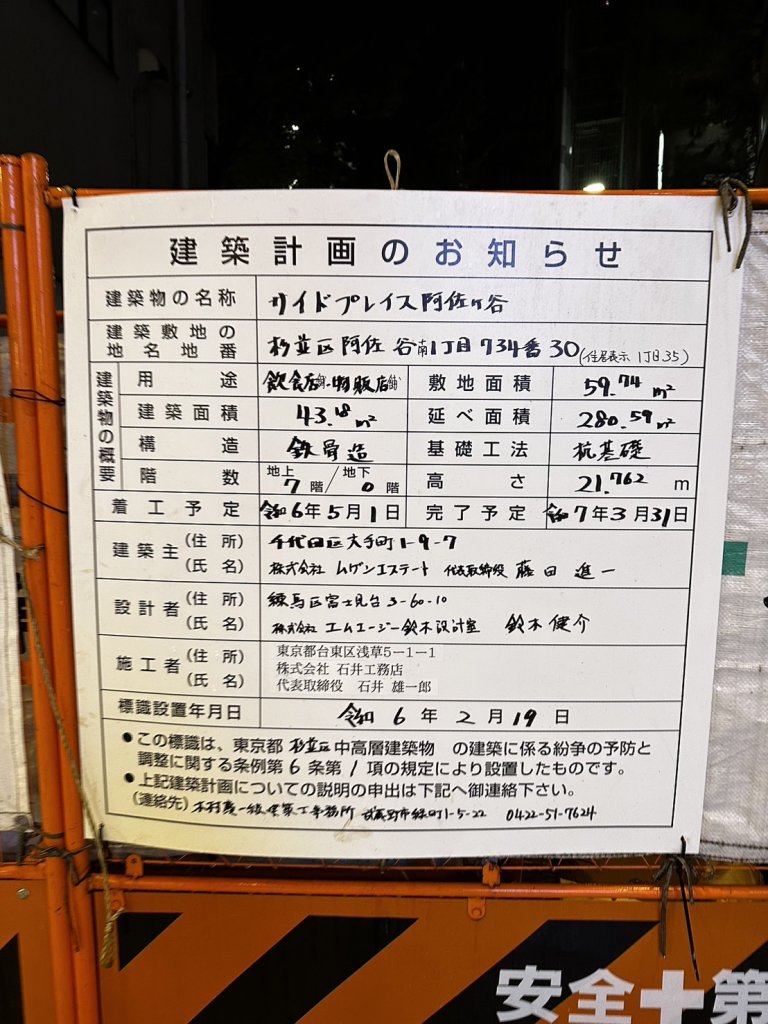 建築計画のお知らせ
建築物の名称 サイドプレイス阿佐ヶ谷
建築敷地の地名地番 杉並区阿佐谷南1丁目734番30(住居表示 1丁目35)
建築物の概要
用途 飲食店舗・物販店舗 敷地面積 59.74㎡
建築面積 43.18㎡ 延べ面積 280.59㎡
構造 鉄骨造 基礎工法 杭基礎
階数 地上7階/地下0階 高さ 21.762m
着工予定 令和6年5月1日 完了予定 令和7年3月31日
建築主(住所) 千代田区大手町1-9-7
(氏名) 株式会社 ムゲンエステート 代表取締役 藤田進一
設計者(住所) 練馬区富士見台3-60-10
(氏名) 株式会社 エムエージー鈴木設計室 鈴木健介
施工者(住所) 東京都台東区浅草5-1-1
(氏名) 株式会社 石井工務店
代表取締役 石井 雄一郎
標識設置年月日 令和6年2月19日
●この標識は、東京都 杉並区中高層建築物 の建築に係る紛争の予防と
調整に関する条例第6条第1項の規定により設置したものです。
●上記建築計画についての説明の申出は下記へ御連絡下さい。
(連絡先) 木村 一級建築士事務所 武蔵野市緑町1-5-22 0422-51-7624
安全✚第